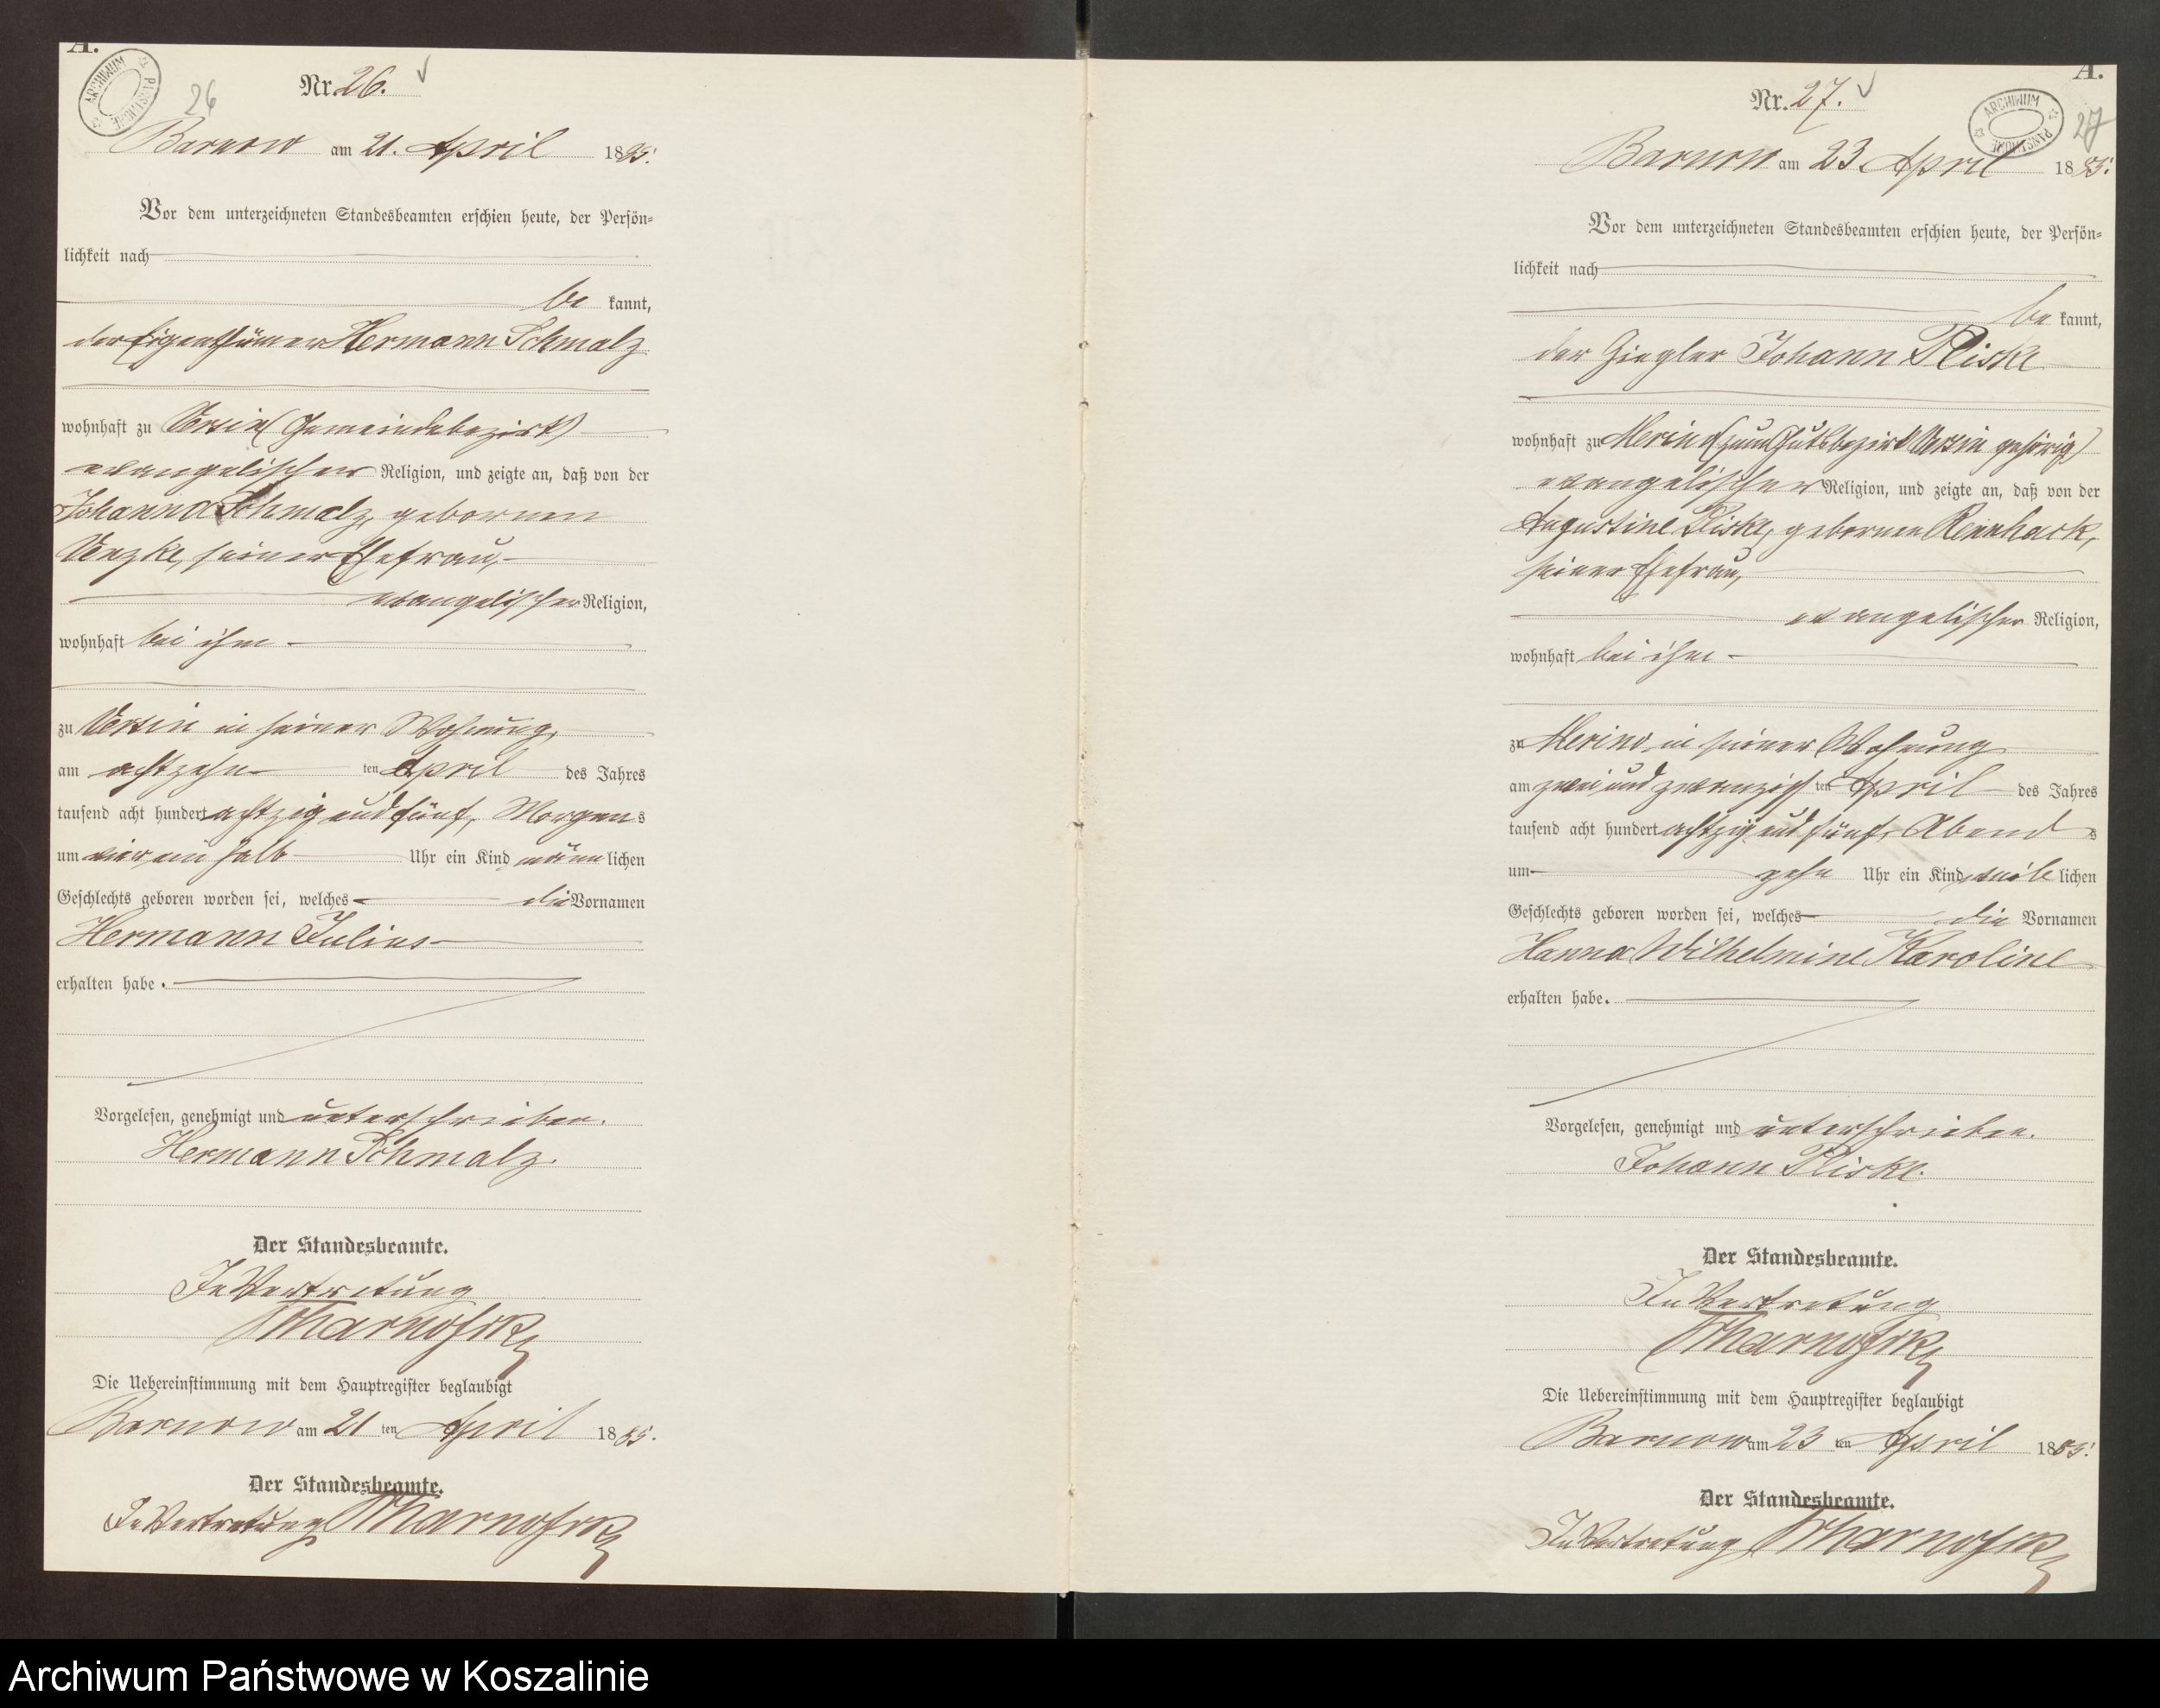 A.
ARCHIWUM PAŃSTWOWE
26
Nr. 26.
Barnow am 21. April 1885.
Vor dem unterzeichneten Standesbeamten erschien heute, der Persön=
lichkeit nach
be kannt,
der Eigenthümer Hermann Schmalz
wohnhaft zu Versin (Gemeindebezirk)
evangelischer Religion, und zeigte an, daß von der
Johanna Schmalz, gebornen
Venzke, seiner Ehefrau,
evangelischer Religion,
wohnhaft bei ihm
zu Versin in seiner Wohnung,
am achtzehn ten April des Jahres
tausend acht hundert achtzig und fünf, Morgens
um vier ein halb Uhr ein Kind männlichen
Geschlechts geboren worden sei, welches die Vornamen
Hermann Julius
erhalten habe.
Vorgelesen, genehmigt und unterschrieben.
Hermann Schmalz.
Der Standesbeamte.
In Vertretung
Die Uebereinstimmung mit dem Hauptregister beglaubigt
Barnow am 21 ten April 1885.
Der Standesbeamte.
In Vertretung
A.
ARCHIWUM PAŃSTWOWE
27
Nr. 27.
Barnow am 23 April 1885.
Vor dem unterzeichneten Standesbeamten erschien heute, der Persön=
lichkeit nach
be kannt,
der Ziegler Johann Pliske
wohnhaft zu Merino (zum Gutsbezirk Versin gehörig)
evangelischer Religion, und zeigte an, daß von der
Augustine Pliske, gebornen
seiner Ehefrau,
evangelischer Religion,
wohnhaft bei ihm
zu Merino, in seiner Wohnung
am zwei und zwanzigsten April des Jahres
tausend acht hundert achtzig und fünf, Abends
um zehn Uhr ein Kind weiblichen
Geschlechts geboren worden sei, welches die Vornamen
Hanna Wilhelmine Karoline
erhalten habe.
Vorgelesen, genehmigt und unterschrieben.
Johann Pliske.
Der Standesbeamte.
In Vertretung
Die Uebereinstimmung mit dem Hauptregister beglaubigt
Barnow am 23 ten April 1885.
Der Standesbeamte.
In Vertretung
Archiwum Państwowe w Koszalinie